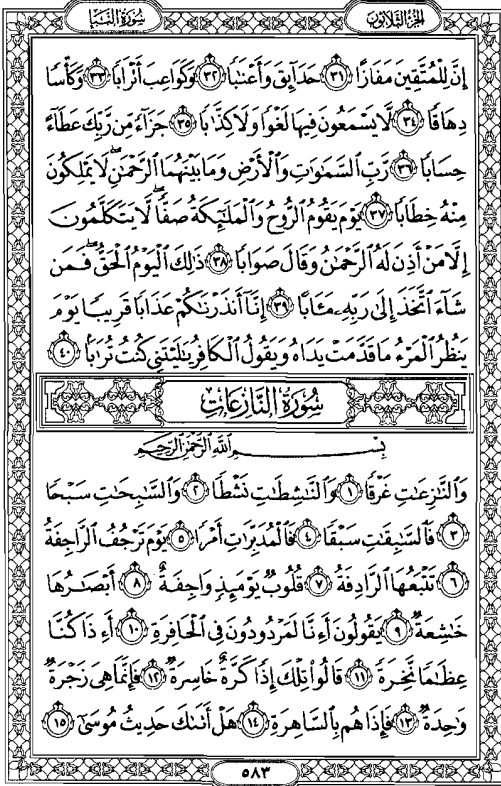 الجزء الثلاثون
سورة النبإ
إِنَّ لِلْمُتَّقِينَ مَفَازًا ٣١ حَدَآئِقَ وَأَعْنَٰبًا ٣٢ وَكَوَاعِبَ أَتْرَابًا ٣٣ وَكَأْسًا
دِهَاقًا ٣٤ لَّا يَسْمَعُونَ فِيهَا لَغْوًا وَلَا كِذَّٰبًا ٣٥ جَزَآءً مِّن رَّبِّكَ عَطَآءً
حِسَابًا ٣٦ رَّبِّ السَّمَٰوَٰتِ وَالْأَرْضِ وَمَا بَيْنَهُمَا الرَّحْمَٰنِ لَا يَمْلِكُونَ
مِنْهُ خِطَابًا ٣٧ يَوْمَ يَقُومُ الرُّوحُ وَالْمَلَٰٓئِكَةُ صَفًّا لَّا يَتَكَلَّمُونَ
إِلَّا مَنْ أَذِنَ لَهُ الرَّحْمَٰنُ وَقَالَ صَوَابًا ٣٨ ذَٰلِكَ الْيَوْمُ الْحَقُّ فَمَن
شَآءَ اتَّخَذَ إِلَىٰ رَبِّهِۦ مَـَٔابًا ٣٩ إِنَّآ أَنذَرْنَٰكُمْ عَذَابًا قَرِيبًا يَوْمَ
يَنظُرُ الْمَرْءُ مَا قَدَّمَتْ يَدَاهُ وَيَقُولُ الْكَافِرُ يَٰلَيْتَنِي كُنتُ تُرَٰبًا ٤٠
سورة النازعات
بِسْمِ اللَّهِ الرَّحْمَٰنِ الرَّحِيمِ
وَالنَّٰزِعَٰتِ غَرْقًا ١ وَالنَّٰشِطَٰتِ نَشْطًا ٢ وَالسَّٰبِحَٰتِ سَبْحًا
٣ فَالسَّٰبِقَٰتِ سَبْقًا ٤ فَالْمُدَبِّرَٰتِ أَمْرًا ٥ يَوْمَ تَرْجُفُ الرَّاجِفَةُ
٦ تَتْبَعُهَا الرَّادِفَةُ ٧ قُلُوبٌ يَوْمَئِذٍ وَاجِفَةٌ ٨ أَبْصَٰرُهَا
خَٰشِعَةٌ ٩ يَقُولُونَ أَءِنَّا لَمَرْدُودُونَ فِي الْحَافِرَةِ ١٠ أَءِذَا كُنَّا
عِظَٰمًا نَّخِرَةً ١١ قَالُوا تِلْكَ إِذًا كَرَّةٌ خَاسِرَةٌ ١٢ فَإِنَّمَا هِيَ زَجْرَةٌ
وَٰحِدَةٌ ١٣ فَإِذَا هُم بِالسَّاهِرَةِ ١٤ هَلْ أَتَىٰكَ حَدِيثُ مُوسَىٰٓ ١٥
٥٨٣